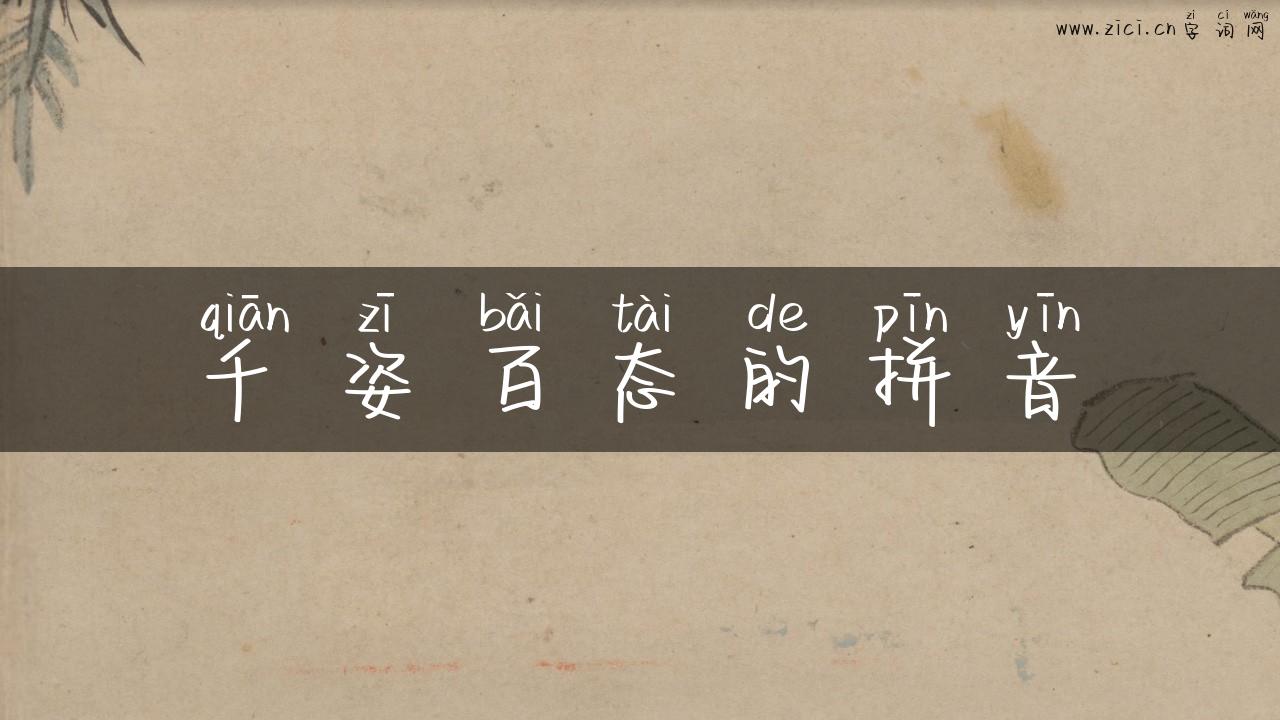 zì cí wǎng
www.zici.cn 字 词 网
qiān zī bǎi tài de pīn yīn
千 姿 百 态 的 拼 音